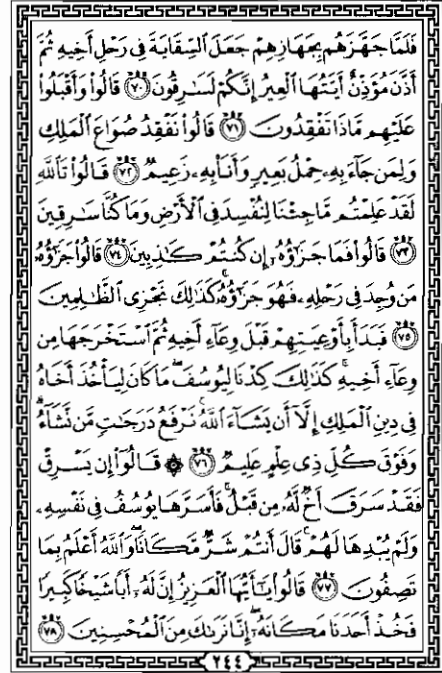 فَلَمَّا جَهَّزَهُم بِجَهَازِهِمْ جَعَلَ ٱلسِّقَايَةَ فِى رَحْلِ أَخِيهِ ثُمَّ
أَذَّنَ مُؤَذِّنٌ أَيَّتُهَا ٱلْعِيرُ إِنَّكُمْ لَسَـٰرِقُونَ ﴿٧٠﴾ قَالُوا۟ وَأَقْبَلُوا۟
عَلَيْهِم مَّاذَا تَفْقِدُونَ ﴿٧١﴾ قَالُوا۟ نَفْقِدُ صُوَاعَ ٱلْمَلِكِ
وَلِمَن جَآءَ بِهِۦ حِمْلُ بَعِيرٍ وَأَنَا۠ بِهِۦ زَعِيمٌ ﴿٧٢﴾ قَالُوا۟ تَٱللَّهِ
لَقَدْ عَلِمْتُم مَّا جِئْنَا لِنُفْسِدَ فِى ٱلْأَرْضِ وَمَا كُنَّا سَـٰرِقِينَ
﴿٧٣﴾ قَالُوا۟ فَمَا جَزَٰٓؤُهُۥٓ إِن كُنتُمْ كَـٰذِبِينَ ﴿٧٤﴾ قَالُوا۟ جَزَٰٓؤُهُۥ
مَن وُجِدَ فِى رَحْلِهِۦ فَهُوَ جَزَٰٓؤُهُۥ ۚ كَذَٰلِكَ نَجْزِى ٱلظَّـٰلِمِينَ
﴿٧٥﴾ فَبَدَأَ بِأَوْعِيَتِهِمْ قَبْلَ وِعَآءِ أَخِيهِ ثُمَّ ٱسْتَخْرَجَهَا مِن
وِعَآءِ أَخِيهِ ۚ كَذَٰلِكَ كِدْنَا لِيُوسُفَ ۖ مَا كَانَ لِيَأْخُذَ أَخَاهُ
فِى دِينِ ٱلْمَلِكِ إِلَّآ أَن يَشَآءَ ٱللَّهُ ۚ نَرْفَعُ دَرَجَـٰتٍ مَّن نَّشَآءُ ۗ
وَفَوْقَ كُلِّ ذِى عِلْمٍ عَلِيمٌ ﴿٧٦﴾ ۞ قَالُوٓا۟ إِن يَسْرِقْ
فَقَدْ سَرَقَ أَخٌ لَّهُۥ مِن قَبْلُ ۚ فَأَسَرَّهَا يُوسُفُ فِى نَفْسِهِۦ
وَلَمْ يُبْدِهَا لَهُمْ ۚ قَالَ أَنتُمْ شَرٌّ مَّكَانًا ۖ وَٱللَّهُ أَعْلَمُ بِمَا
تَصِفُونَ ﴿٧٧﴾ قَالُوا۟ يَـٰٓأَيُّهَا ٱلْعَزِيزُ إِنَّ لَهُۥٓ أَبًا شَيْخًا كَبِيرًا
فَخُذْ أَحَدَنَا مَكَانَهُۥٓ ۖ إِنَّا نَرَىٰكَ مِنَ ٱلْمُحْسِنِينَ ﴿٧٨﴾
٢٤٤